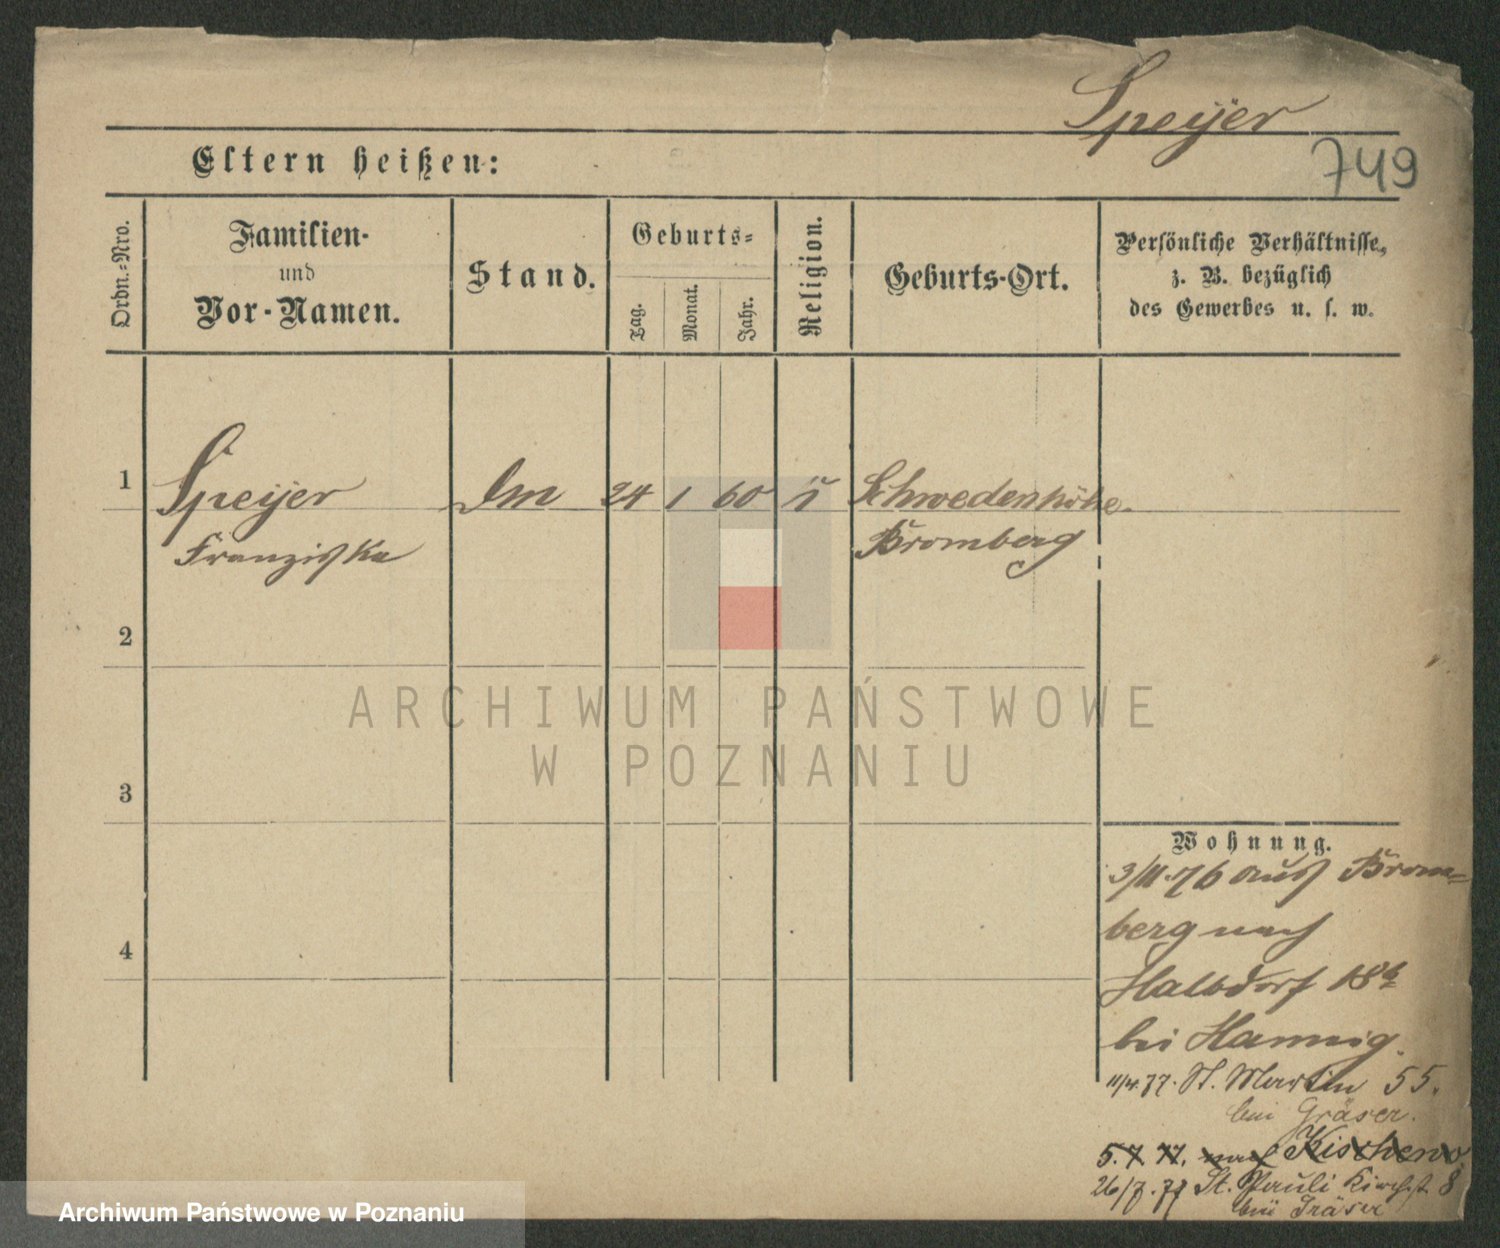 Speijer
749
Eltern heißen:
Ordn.-Nro.
Familien-
und
Vor-Namen.
Stand.
Geburts-
Tag.
Monat.
Jahr.
Religion.
Geburts-Ort.
Persönliche Verhältnisse,
z. B. bezüglich
des Gewerbes u. s. w.
1 Speijer Dm 24 1 60 j Schwedenhöhe
Franziska Bromberg
2
3
4
Wohnung.
3/11.76 aus Brom-
berg nach
Halbdorf 18b
bei Hannig.
11/4.77. St. Martin 55.
bei Gräser.
5.7.77. nach Kischewo
26/7.77 St. Pauli Kirchst. 8
bei Gräser
ARCHIWUM PAŃSTWOWE
W POZNANIU
Archiwum Państwowe w Poznaniu